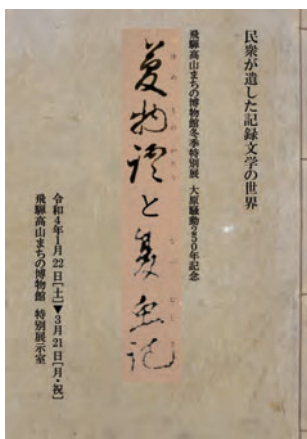 民衆が遺した記録文学の世界
飛騨高山まちの博物館冬季特別展 大原騒動250年記念
夢物語と夏虫記
ゆめものがたり なつむしき
令和4年1月22日[土]▼3月21日[月・祝]
飛騨高山まちの博物館 特別展示室